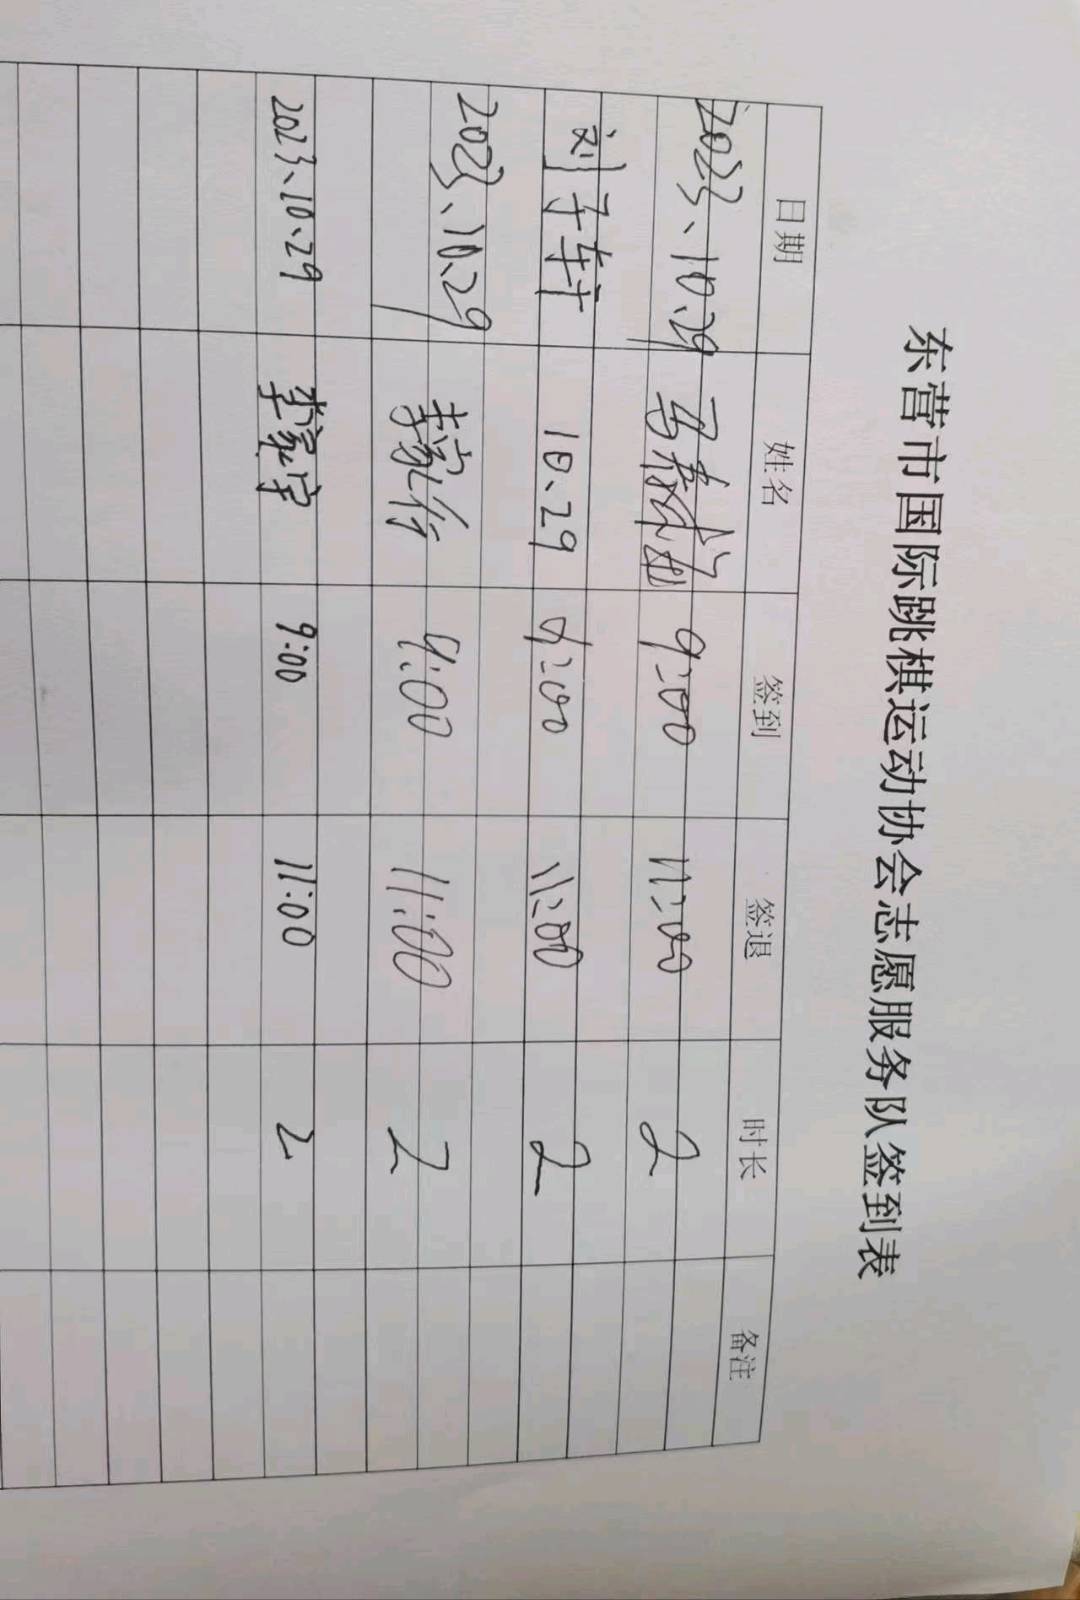 东营市国际跳棋运动协会志愿服务队签到表
日期 姓名 签到 签退 时长 备注
2023、10、29 马 9:00 11:00 2
刘子轩 10、29 9:00 11:00 2
2023、10.29 李家 9:00 11:00 2
2023、10、29 李家宇 9:00 11:00 2